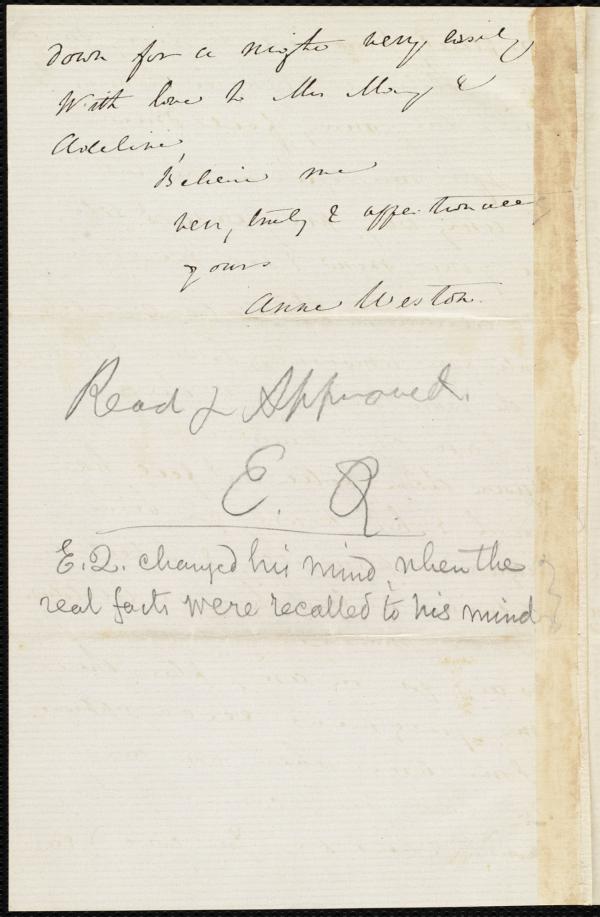 down for a night very easily
With love to Mrs May &
Adeline,
Believe me
very truly & affectionately
yours
Anne Weston.
Read & Approved.
E. Q.
E. Q. changed his mind, when the
real facts were recalled to his mind